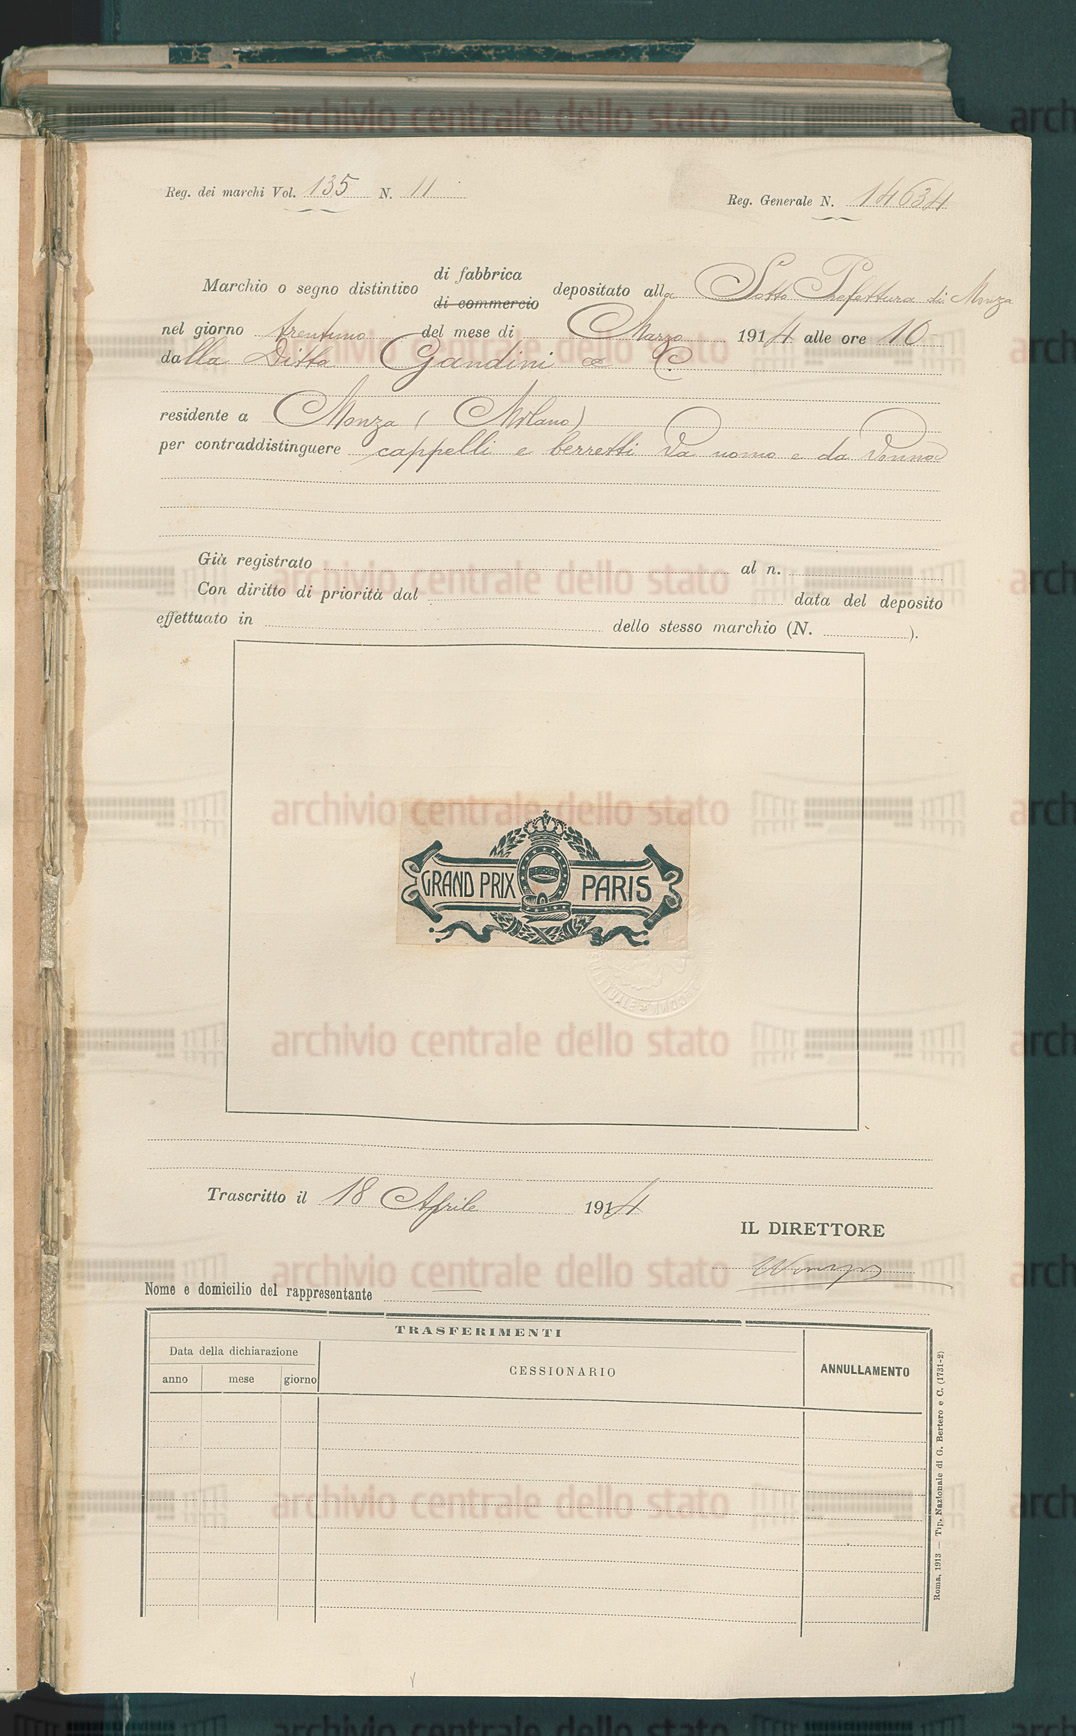 Reg. dei marchi Vol. 135 N. 11
Reg. Generale N. 14634
Marchio o segno distintivo di fabbrica di commercio depositato alla Sotto Prefettura di Monza
nel giorno trentuno del mese di Marzo 1914 alle ore 10
dalla Ditta Gandini & C.
residente a Monza (Milano)
per contraddistinguere cappelli e berretti da uomo e da donna
Già registrato al n.
Con diritto di priorità dal data del deposito
effettuato in dello stesso marchio (N. ).
GRAND PRIX PARIS
Trascritto il 18 Aprile 1914
IL DIRETTORE
Nome e domicilio del rappresentante
TRASFERIMENTI
Data della dichiarazione
anno mese giorno
CESSIONARIO
ANNULLAMENTO
Roma, 1913 — Tip. Nazionale di G. Bertero e C. (1731-2)
archivio centrale dello stato